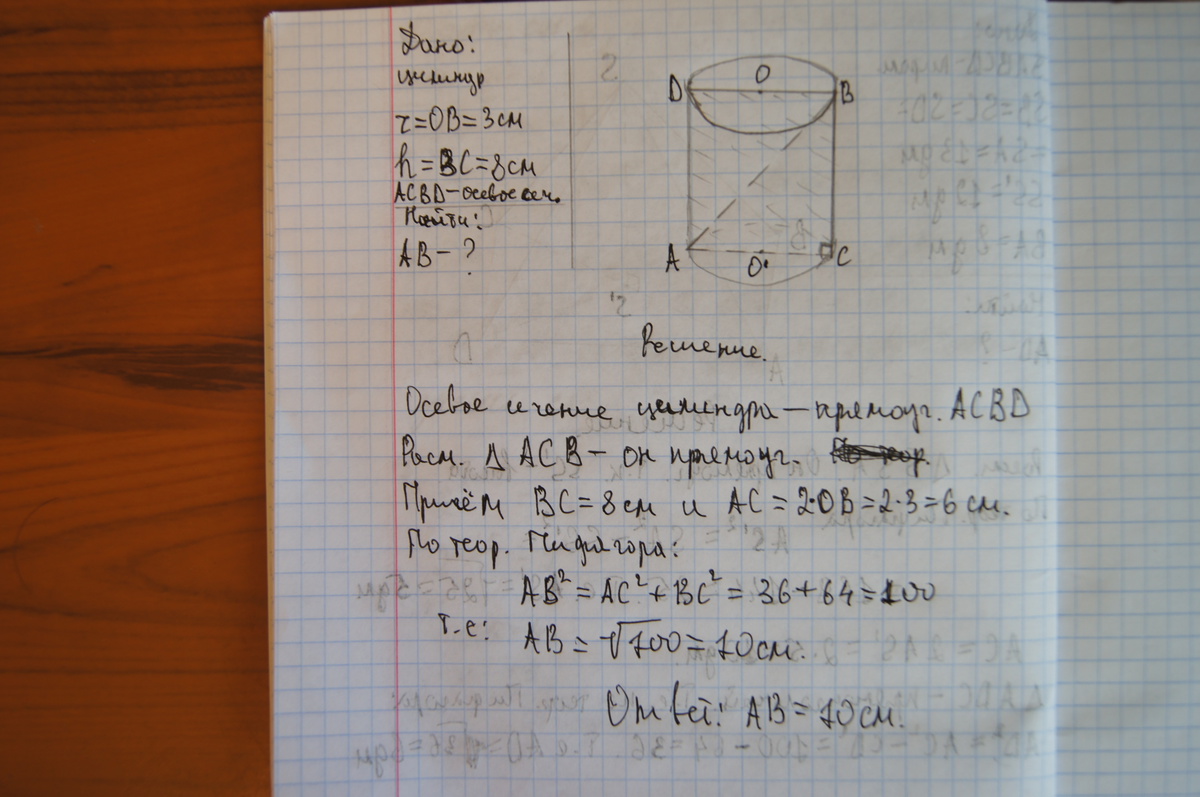 Дано:
цилиндр
r=OB=3см
h=BC=8см
ACBD-осевое сеч.
Найти:
AB-?
D O B
A O' C
Решение.
Осевое сечение цилиндра — прямоуг. ACBD
Расм. Δ ACB — он прямоуг.
Причём BC=8см и AC=2·OB=2·3=6 см.
По теор. Пифагора:
AB²=AC²+BC²=36+64=100
т.е: AB=√100=10см.
Ответ: AB=10см.